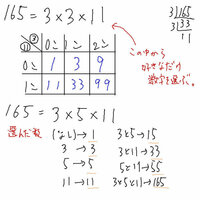 165 = 3×3×11
3)165
3)33
11
③
⑪
0コ 1コ 2コ
0コ 1 3 9
1コ 11 33 99
この中から
好きなだけ
数字を選ぶ。
165 = 3×5×11
選んだ数
(なし)→1
3→3
5→5
11→11
3×5→15
3×11→33
5×11→55
3×5×11→165